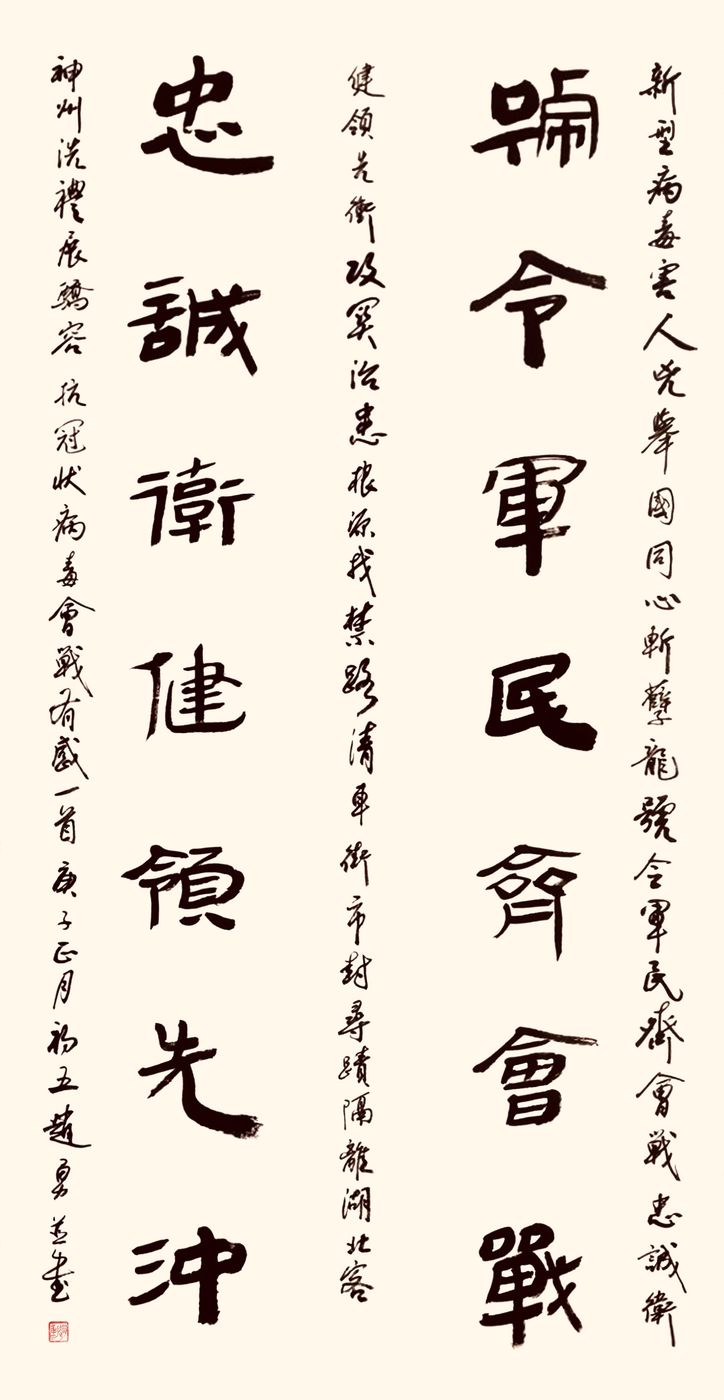 新型病毒害人兇舉國同心斬孽龍號令軍民齊會戰忠誠衛
號令軍民齊會戰
健領先衝攻關治患根源找禁路清車街市封尋蹟隔離湖北客
忠誠衛健領先沖
神州洗禮展驕容 抗冠狀病毒會戰有感一首 庚子正月初五趙勇並書